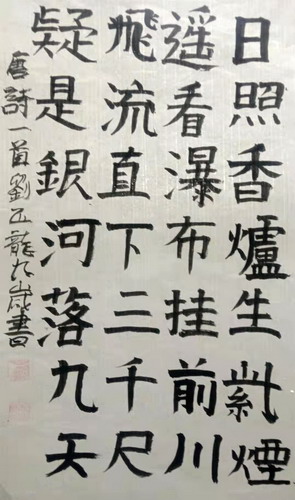 日照香爐生紫煙
遥看瀑布挂前川
飛流直下三千尺
疑是銀河落九天
唐詩一首劉正龍九歲書